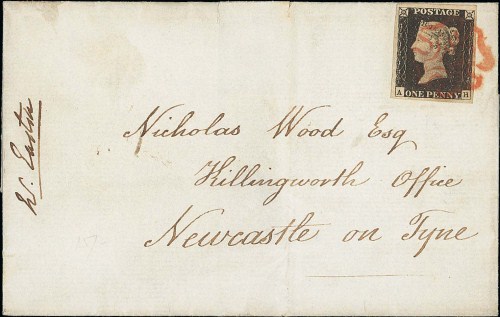 POSTAGE
A ONE PENNY H
Nicholas Wood Esq
Killingworth Office
Newcastle on Tyne